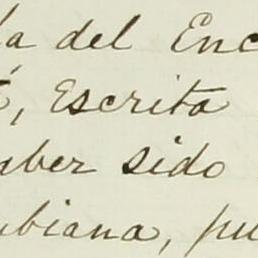 la del Enc
, Escrita
aber sido
ubiana, pu